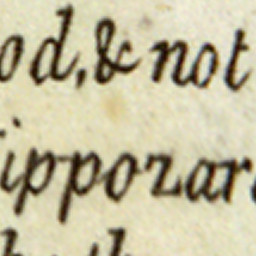 od, & not
ippozar